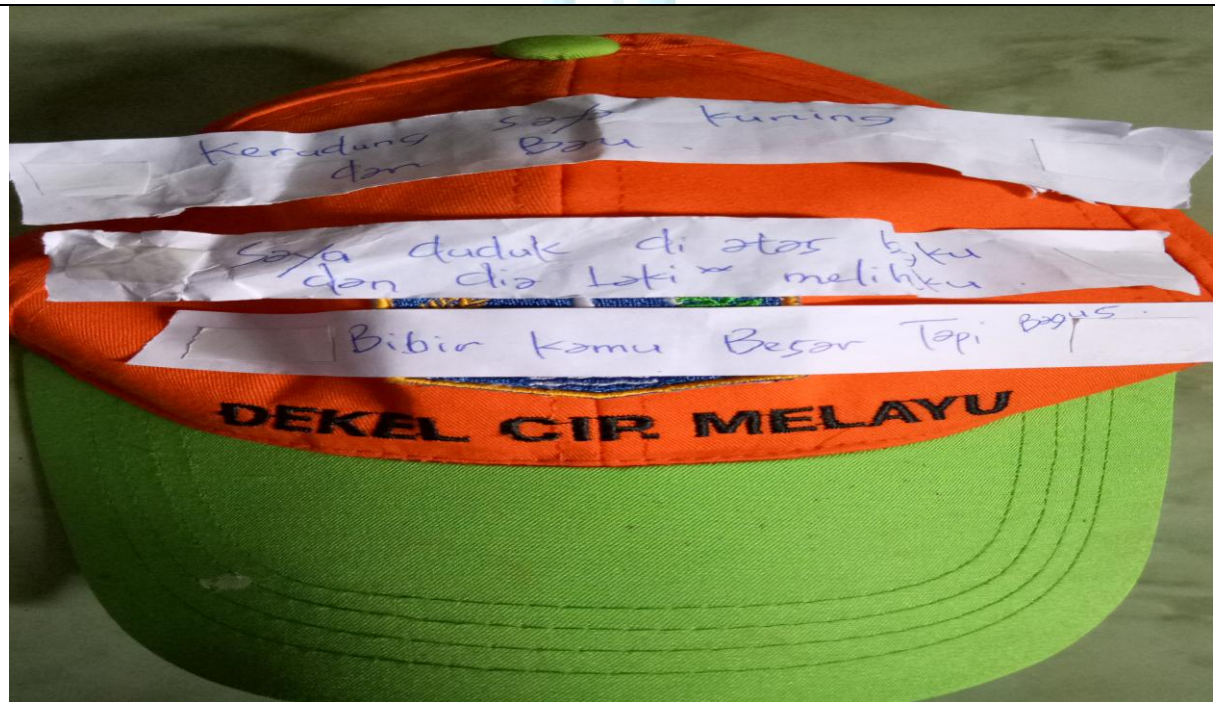 Kerudung saya kuning
dan Bau.
Saya duduk di atas
dan dia Laki" melihku.
Bibir kamu Besar Tapi Bagus.
DEKEL CIR MELAYU